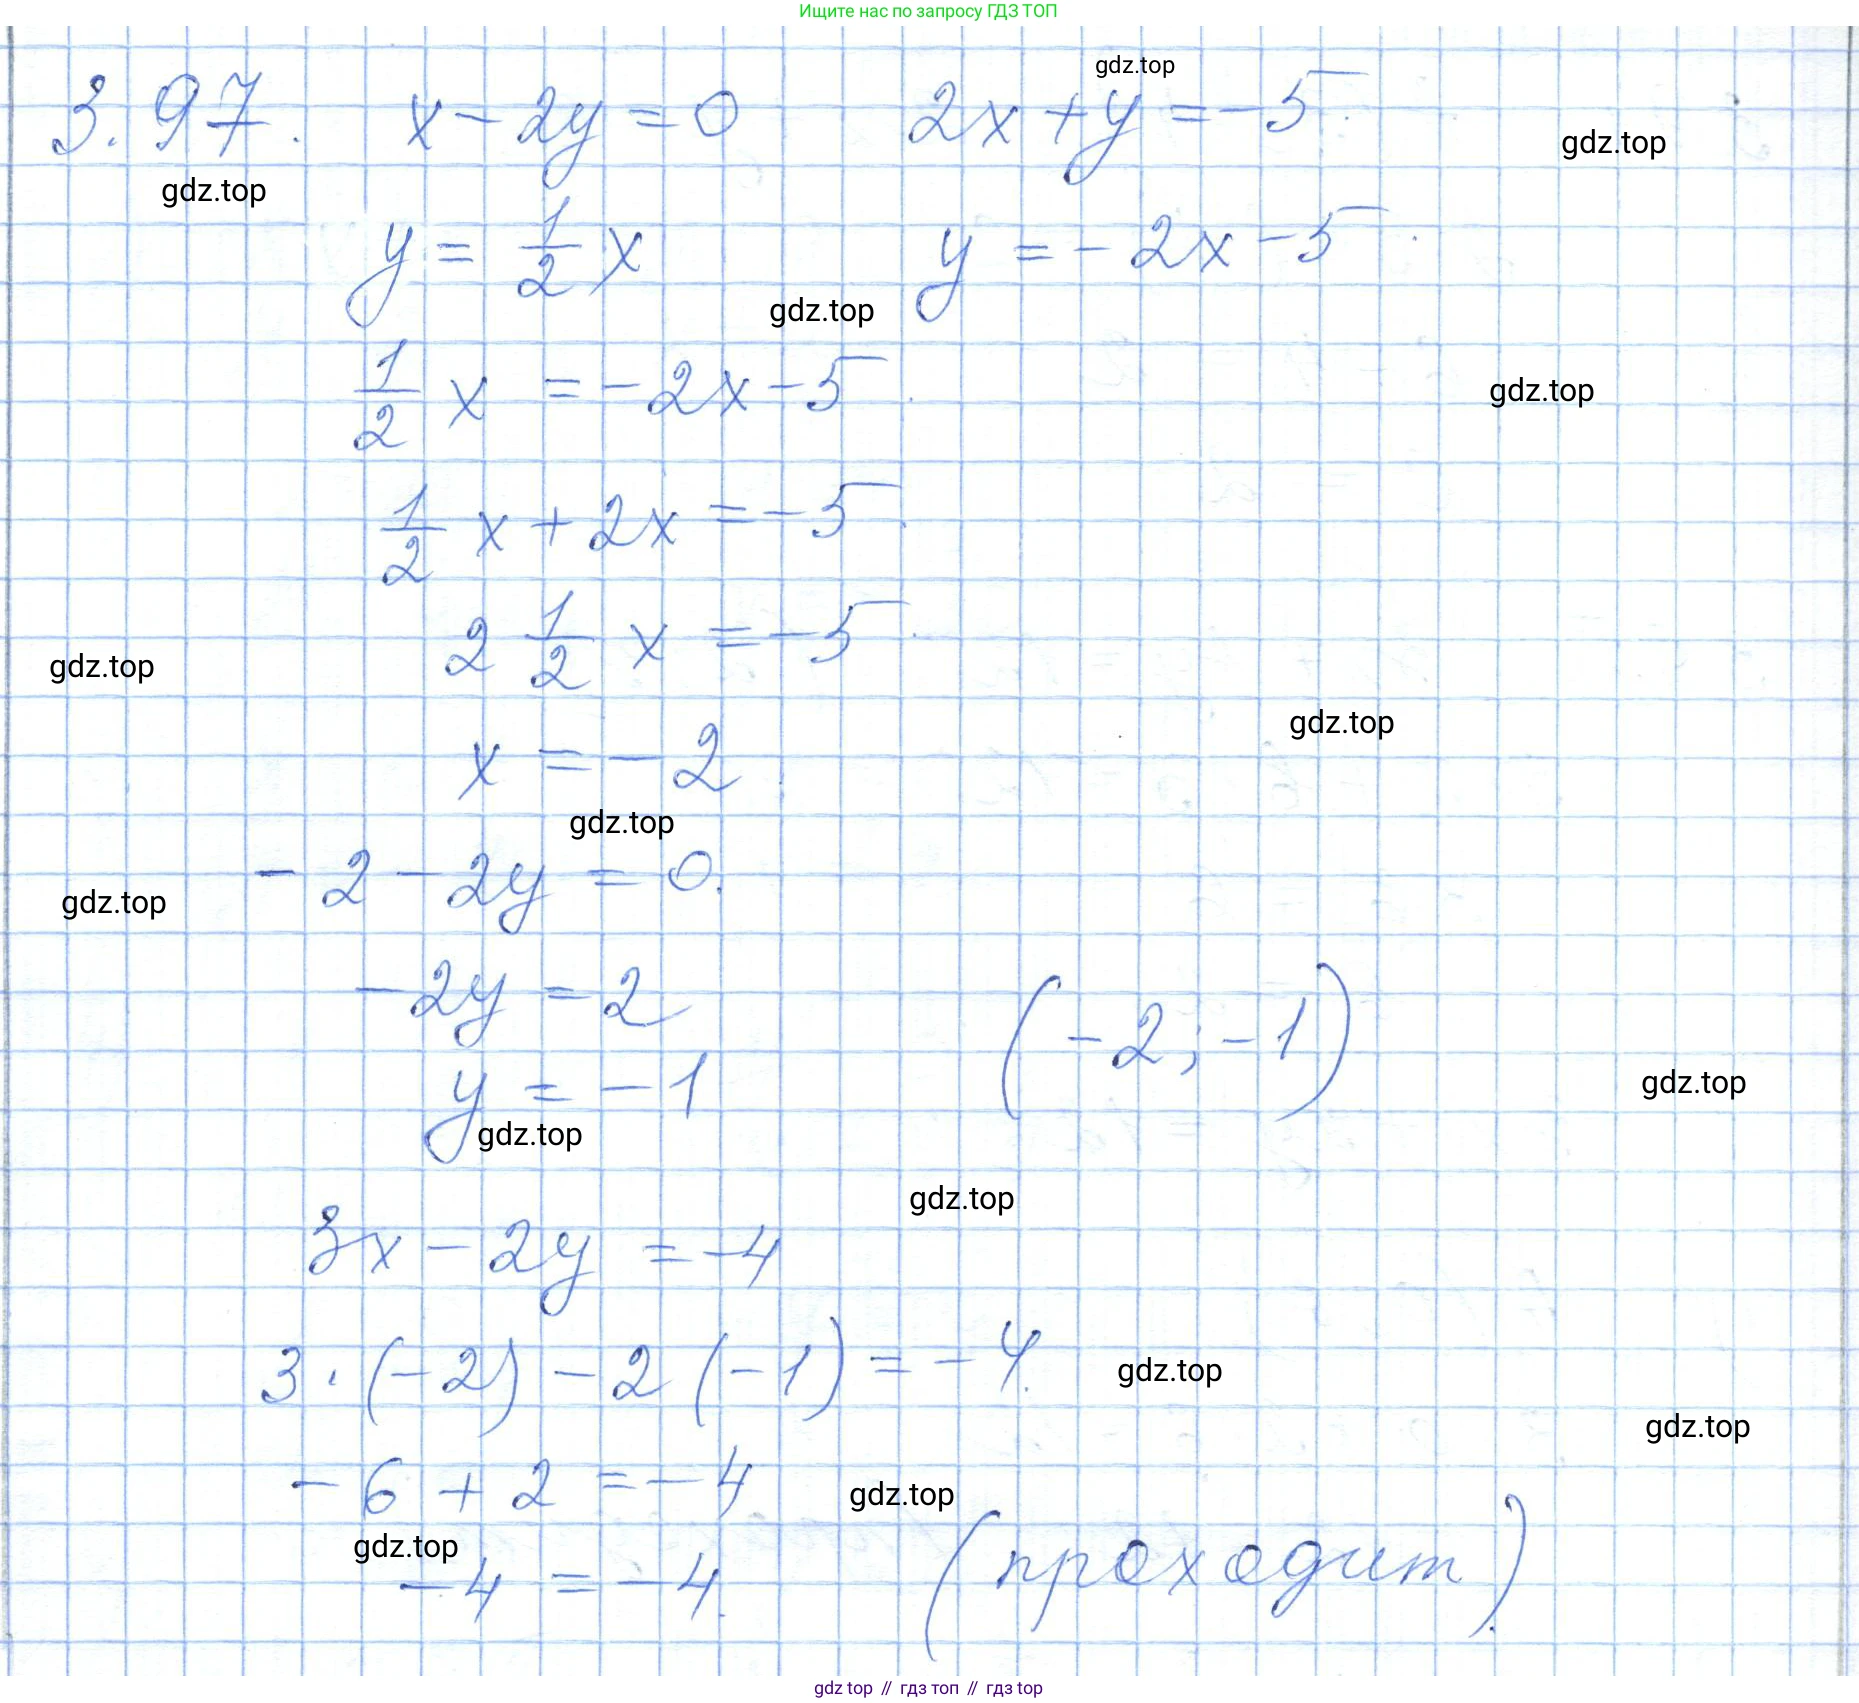 Ищите нас по запросу ГДЗ ТОП
gdz.top
3.97. x - 2y = 0 2x + y = -5.
gdz.top
gdz.top
y = 1/2 x y = -2x - 5
gdz.top
1/2 x = -2x - 5
gdz.top
1/2 x + 2x = -5
2 1/2 x = -5
gdz.top
gdz.top
x = -2
gdz.top
-2 - 2y = 0.
gdz.top
-2y = 2
(-2; -1)
y = -1
gdz.top
gdz.top
gdz.top
3x - 2y = -4
3 · (-2) - 2 (-1) = -4.
gdz.top
gdz.top
-6 + 2 = -4
gdz.top
gdz.top
-4 = -4. (проходит)
gdz top // гдз топ // гдз top